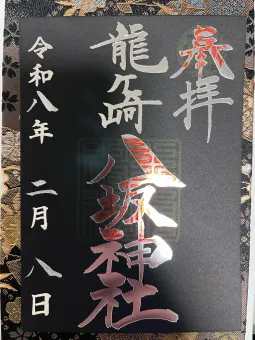 奉拝
龍ヶ崎
八坂神社
令和八年 二月 八日